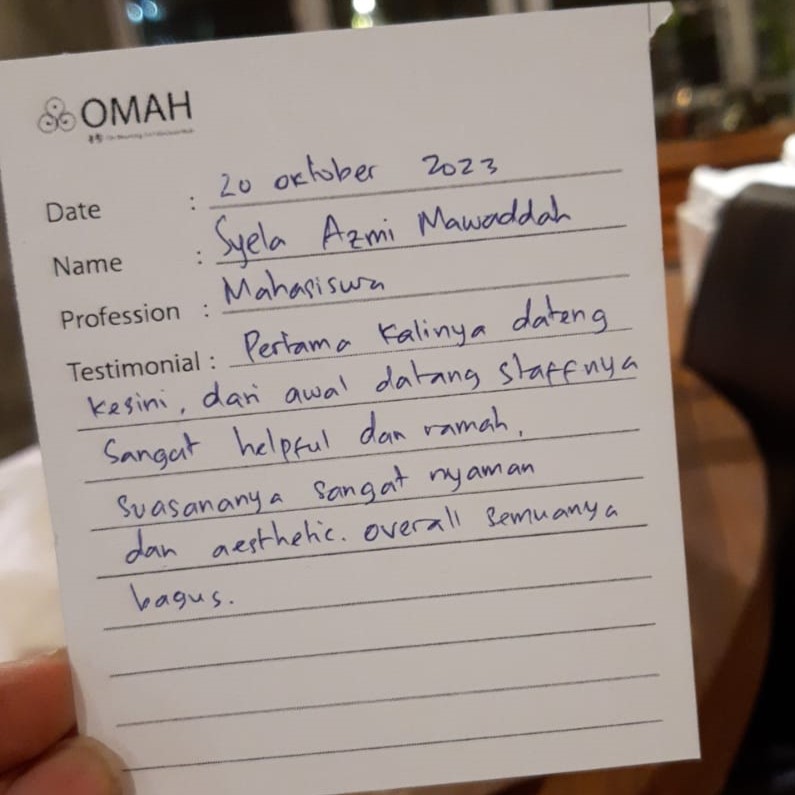 OMAH
Date : 20 oktober 2023
Name : Syela Azmi Mawaddah
Profession : Mahasiswa
Testimonial : Pertama kalinya dateng
kesini, dari awal datang staffnya
sangat helpful dan ramah,
suasananya sangat nyaman
dan aesthetic. overall semuanya
bagus.